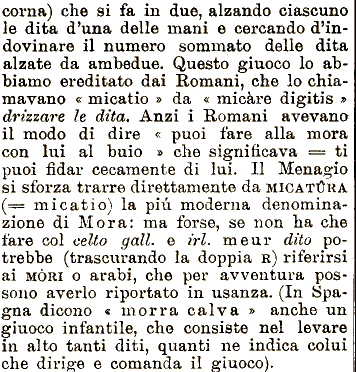 corna) che si fa in due, alzando ciascuno
le dita d'una delle mani e cercando d'in-
dovinare il numero sommato delle dita
alzate da ambedue. Questo giuoco lo ab-
biamo ereditato dai Romani, che lo chia-
mavano « micatio » da « micàre digitis »
drizzare le dita. Anzi i Romani avevano
il modo di dire « puoi fare alla mora
con lui al buio » che significava = ti
puoi fidar cecamente di lui. Il Menagio
si sforza trarre direttamente da MICATÛRA
(= micatio) la più moderna denomina-
zione di Mora: ma forse, se non ha che
fare col celto gall. e irl. meur dito po-
trebbe (trascurando la doppia R) riferirsi
ai MÒRI o arabi, che per avventura pos-
sono averlo riportato in usanza. (In Spa-
gna dicono « morra calva » anche un
giuoco infantile, che consiste nel levare
in alto tanti diti, quanti ne indica colui
che dirige e comanda il giuoco).